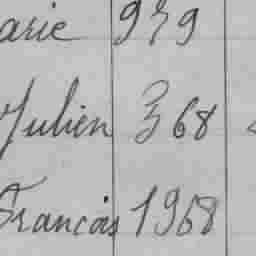 arie 939
Julien 368
Francois 1968